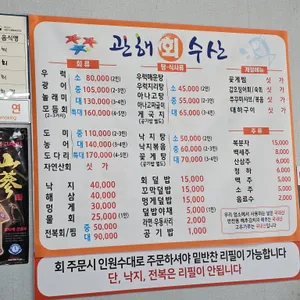 관해 회 수산
회 류
우 럭 소 80,000 (2인)
광 어 중 105,000 (3인)
놀래미 대 130,000 (4인)
모듬회 특대 160,000 (4-5인)
도 미 소 110,000 (2인)
농 어 중 140,000 (3인)
도다리 특대 170,000 (4-5인)
자연산회 싯 가
낙 지 40,000
해 삼 40,000
멍 게 30,000
물 회 25,000 (1인)
전복회/찜 중 50,000
대 90,000
탕·식사류
우럭매운탕
우럭지리탕 소 45,000 (2인)
아나고탕 중 55,000 (3인)
아나고찌개 대 65,000 (4인)
게국지
(공기밥 별도)
낙지탕 소 50,000 (2인)
낙지볶음 중 60,000 (3인)
꽃게탕 대 70,000 (4인)
(공기밥 별도)
회덮밥 15,000
꼬막덮밥 15,000
멍게덮밥 15,000
덮밥야채 5,000
라면·우동사리 2,000
공기밥 1,000
계절메뉴
꽃게찜 싯 가
갑오징어회/숙회 싯 가
쭈꾸미샤브/볶음 싯 가
대하구이 싯 가
주 류
복분자 15,000
백세주 8,000
산삼주 8,000
청 하 6,000
백 주 5,000
소 주 5,000
음료수 2,000
회 주문시 인원수대로 주문하셔야 밑반찬 리필이 가능합니다
단, 낙지, 전복은 리필이 안됩니다